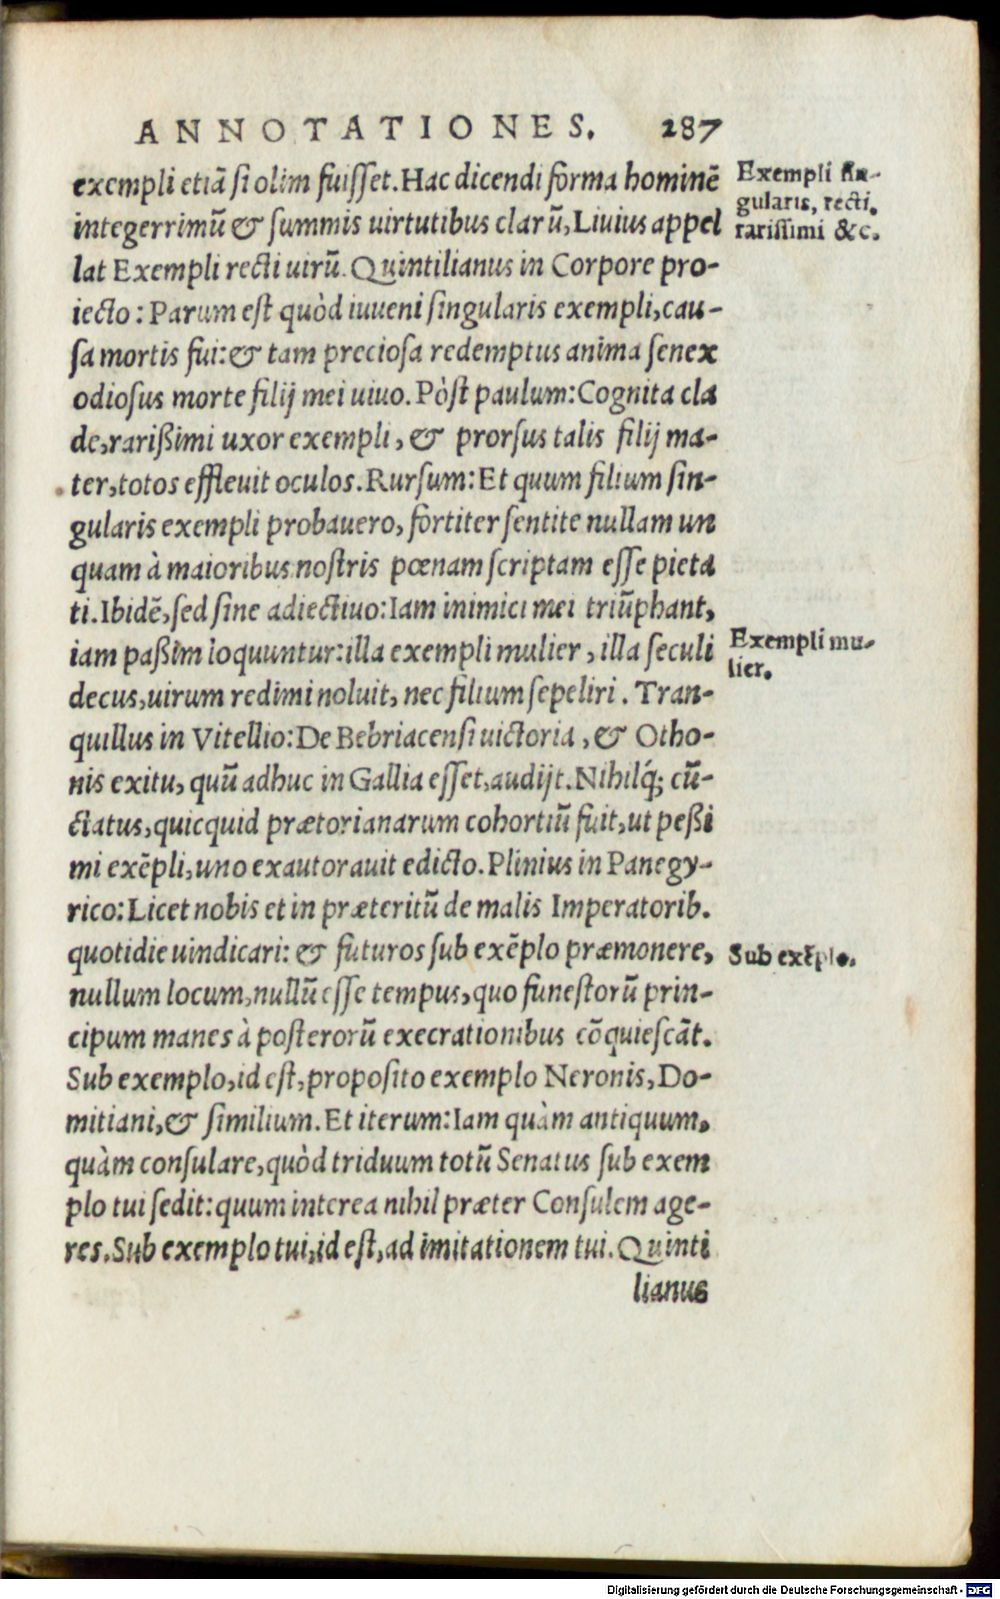 ANNOTATIONES. 287
exempli etiā si olim fuisset. Hac dicendi forma hominē
integerrimū & summis uirtutibus clarū, Liuius appel
lat Exempli recti uirū. Quintilianus in Corpore pro-
iecto: Parum est quòd iuueni singularis exempli, cau-
sa mortis fui: & tam preciosa redemptus anima senex
odiosus morte filij mei uiuo. Pòst paulum: Cognita cla
de, rarißimi uxor exempli, & prorsus talis filij ma-
ter, totos effleuit oculos. Rursum: Et quum filium sin-
gularis exempli probauero, fortiter sentite nullam un
quam à maioribus nostris pœnam scriptam esse pieta
ti. Ibidē, sed sine adiectiuo: Iam inimici mei triūphant,
iam paßim loquuntur: illa exempli mulier, illa seculi
decus, uirum redimi noluit, nec filium sepeliri. Tran-
quillus in Vitellio: De Bebriacensi uictoria, & Otho-
nis exitu, quū adhuc in Gallia esset, audijt. Nihilq́; cū-
ctatus, quicquid prætorianarum cohortiū fuit, ut peßi
mi exēpli, uno exautorauit edicto. Plinius in Panegy-
rico: Licet nobis et in præteritū de malis Imperatorib.
quotidie uindicari: & futuros sub exēplo præmonere,
nullum locum, nullū esse tempus, quo funestorū prin-
cipum manes à posterorū execrationibus cōquiescāt.
Sub exemplo, id est, proposito exemplo Neronis, Do-
mitiani, & similium. Et iterum: Iam quàm antiquum,
quàm consulare, quòd triduum totū Senatus sub exem
plo tui sedit: quum interea nihil præter Consulem age-
res. Sub exemplo tui, id est, ad imitationem tui. Quinti
lianus
Exempli sin-
gularis, recti,
rarissimi &c.
Exempli mu-
lier.
Sub exēplo.
Digitalisierung gefördert durch die Deutsche Forschungsgemeinschaft - DFG